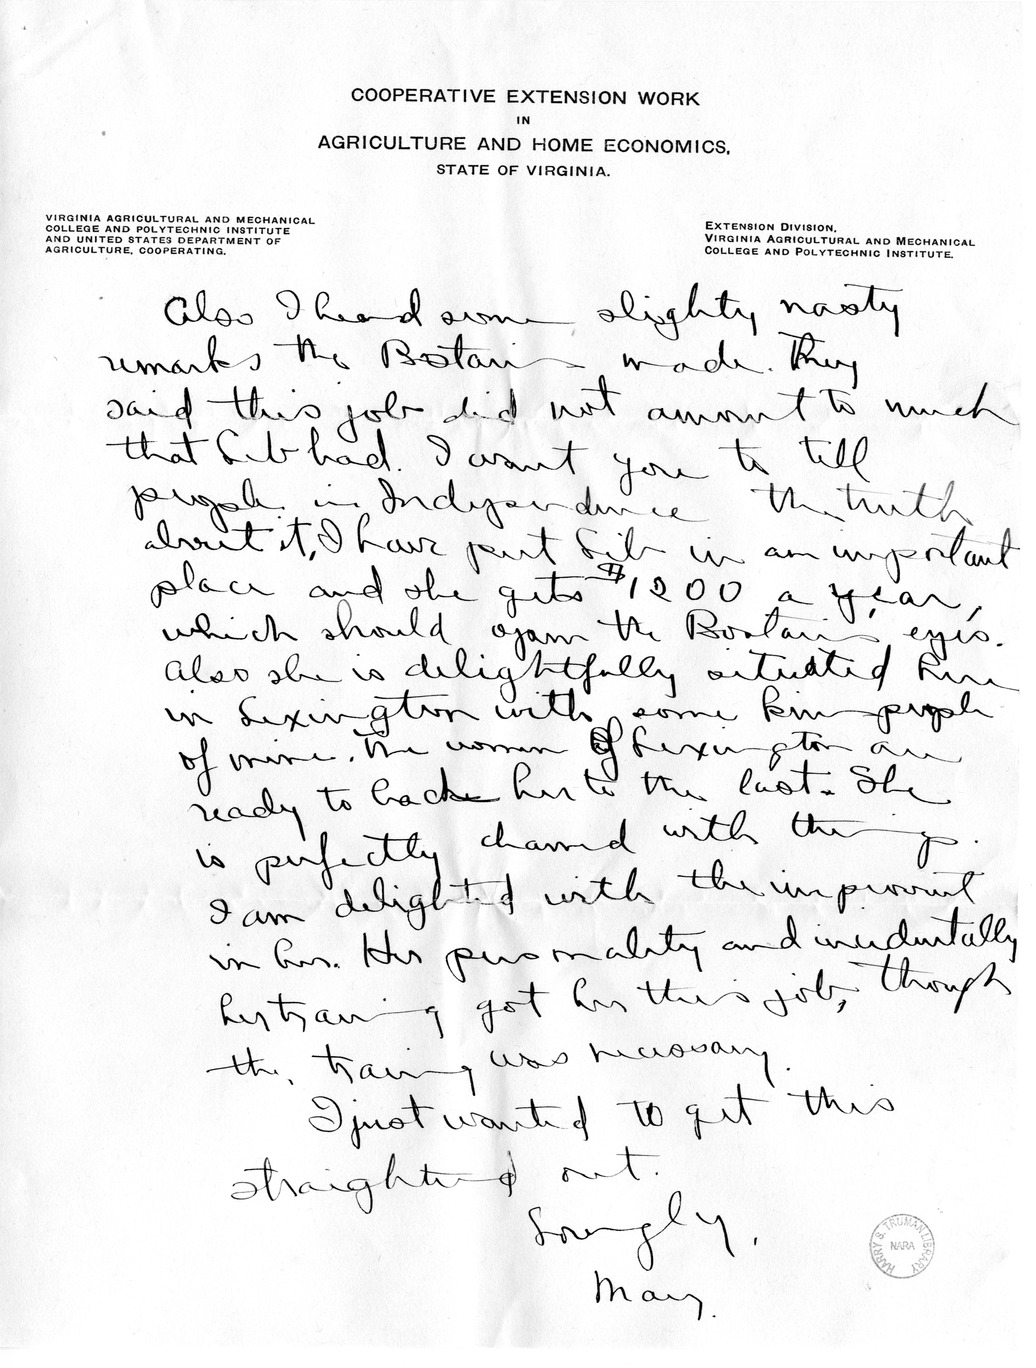 COOPERATIVE EXTENSION WORK
IN
AGRICULTURE AND HOME ECONOMICS,
STATE OF VIRGINIA.
VIRGINIA AGRICULTURAL AND MECHANICAL
COLLEGE AND POLYTECHNIC INSTITUTE
AND UNITED STATES DEPARTMENT OF
AGRICULTURE, COOPERATING.
EXTENSION DIVISION,
VIRGINIA AGRICULTURAL AND MECHANICAL
COLLEGE AND POLYTECHNIC INSTITUTE.
Also I heard some slighty nasty
remarks the Bostains made. They
said this job did not amount to much
that Sib had. I want you to tell
people in Independence the truth
about it, I have put Sib in an important
place and she gets $1200 a year,
which should open the Bostains eyes.
Also she is delightfully situated here
in Lexington with some kin people
of mine. The women of Lexington are
ready to back her to the last. She
is perfectly charmed with things.
I am delighted with the improvement
in her. Her personality and incidentally
her training got her this job, though
the training was necessary.
I just wanted to get this
straightened out.
Lovingly,
Mary.
HARRY S. TRUMAN LIBRARY
NARA